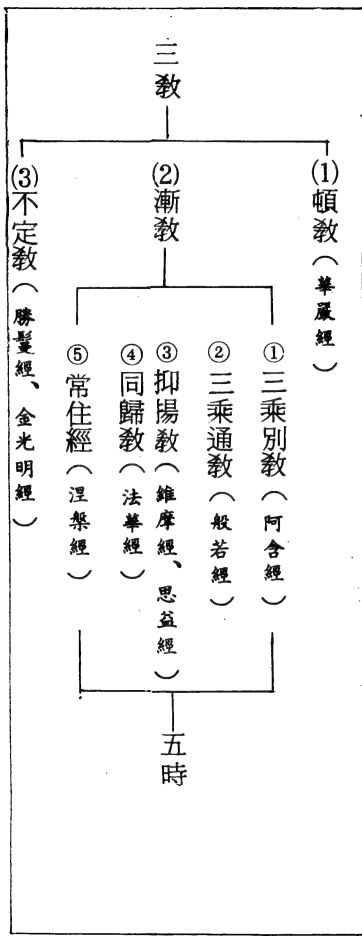 三教
(1)頓教(華嚴經)
(2)漸教
①三乘別教(阿含經)
②三乘通教(般若經)
③抑揚教(維摩經、思益經)
④同歸教(法華經)
⑤常住經(涅槃經)
五時
(3)不定教(勝鬘經、金光明經)